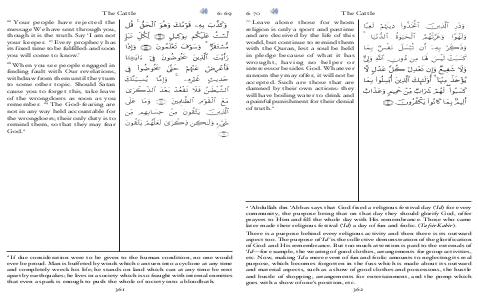 The Cattle 6: 69
66 Your people have rejected the
message We have sent through you,
though it is the truth. Say 'I am not
your keeper. 67 Every prophecy has
its fixed time to be fulfilled: and soon
you will come to know.'
68 When you see people engaged in
finding fault with Our revelations,
withdraw from them until they turn
to some other topic. Should Satan
cause you to forget this, take leave
of the wrongdoers as soon as you
remember. 69 The God-fearing are
not in any way held accountable for
the wrongdoers; their only duty is to
remind them, so that they may fear
God.a
وَكَذَّبَ بِهِۦ قَوْمُكَ وَهُوَ ٱلْحَقُّ ۚ قُل
لَّسْتُ عَلَيْكُم بِوَكِيلٍ ۝ لِّكُلِّ نَبَإٍ
مُّسْتَقَرٌّ ۚ وَسَوْفَ تَعْلَمُونَ ۝ وَإِذَا
رَأَيْتَ ٱلَّذِينَ يَخُوضُونَ فِىٓ ءَايَـٰتِنَا
فَأَعْرِضْ عَنْهُمْ حَتَّىٰ يَخُوضُوا۟
فِى حَدِيثٍ غَيْرِهِۦ ۚ وَإِمَّا يُنسِيَنَّكَ
ٱلشَّيْطَـٰنُ فَلَا تَقْعُدْ بَعْدَ ٱلذِّكْرَىٰ
مَعَ ٱلْقَوْمِ ٱلظَّـٰلِمِينَ ۝ وَمَا عَلَى
ٱلَّذِينَ يَتَّقُونَ مِنْ حِسَابِهِم مِّن
شَىْءٍ وَلَـٰكِن ذِكْرَىٰ لَعَلَّهُمْ يَتَّقُونَ
۝
a If due consideration were to be given to the human condition, no one would
ever be proud. Man is buffeted by winds which can turn into a cyclone at any time
and completely wreck his life; he stands on land which can at any time be rent
apart by earthquakes; he lives in a society which is so fraught with internal enmities
that even a spark is enough to push the whole of society into a bloodbath.
361
6: 70 The Cattle
70 Leave alone those for whom
religion is only a sport and pastime
and are deceived by the life of this
world, but continue to remind them
with the Quran, lest a soul be held
in pledge because of what it has
wrought, having no helper or
intercessor besides God. Whatever
ransom they may offer, it will not be
accepted. Such are those that are
damned by their own actions: they
will have boiling water to drink and
a painful punishment for their denial
of truth.a
وَذَرِ ٱلَّذِينَ ٱتَّخَذُوا۟ دِينَهُمْ لَعِبًا
وَلَهْوًا وَغَرَّتْهُمُ ٱلْحَيَوٰةُ ٱلدُّنْيَا ۚ
وَذَكِّرْ بِهِۦٓ أَن تُبْسَلَ نَفْسٌۢ بِمَا
كَسَبَتْ لَيْسَ لَهَا مِن دُونِ ٱللَّهِ وَلِىٌّ
وَلَا شَفِيعٌ وَإِن تَعْدِلْ كُلَّ عَدْلٍ لَّا
يُؤْخَذْ مِنْهَآ ۗ أُو۟لَـٰٓئِكَ ٱلَّذِينَ أُبْسِلُوا۟ بِمَا
كَسَبُوا۟ ۖ لَهُمْ شَرَابٌ مِّنْ حَمِيمٍ وَعَذَابٌ
أَلِيمٌۢ بِمَا كَانُوا۟ يَكْفُرُونَ ۝
a 'Abdullah ibn 'Abbas says that God fixed a religious festival day ('Id) for every
community, the purpose being that on that day they should glorify God, offer
prayers to Him and fill the whole day with His remembrance. Those who came
later made their religious festival ('Id) a day of fun and frolic. (Tafsir Kabir).
There is a purpose behind every religious activity and then there is its outward
aspect too. The purpose of 'Id is the collective demonstration of the glorification
of God and His remembrance. But too much attention is paid to the externals of
'Id—for example, the wearing of good clothes, arrangements for group activities,
etc. Now, making 'Id a mere event of fun and frolic amounts to neglecting its real
purpose, which becomes forgotten in the fuss which is made about its outward
and material aspects, such as a show of good clothes and possessions, the hustle
and bustle of shopping, arrangements for entertainment, and the pomp which
goes with a show of one's position, etc.
362